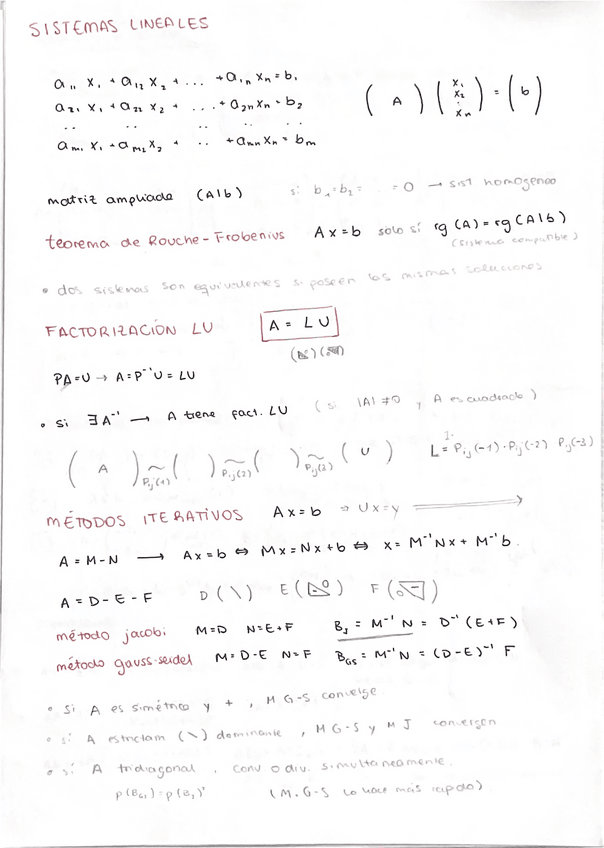 SISTEMAS LINEALES
a₁₁ x₁ + a₁₂ x₂ + ... + a₁ₙ xₙ = b₁
a₂₁ x₁ + a₂₂ x₂ + ... + a₂ₙ xₙ = b₂
( A ) ( x₁ x₂ : xₙ ) = ( b )
.. .. .. .. ..
aₘ₁ x₁ + aₘ₂ x₂ + .. + aₘₙ xₙ = bₘ
matriz ampliada (A|b) si b₁=b₂= . . =0 → sist homogeneo
teorema de Rouche-Frobenius Ax=b solo si rg(A) = rg(A|b)
(sistema compatible)
• dos sistemas son equivalentes si poseen las mismas soluciones
FACTORIZACIÓN LU A = LU
PA=U → A=P⁻¹U = LU
• si ∃A⁻¹ → A tiene fact. LU (si |A| ≠0 y A es cuadrada)
( A ) ~ Pij(1) ( ) ~ Pij(2) ( ) ~ Pij(3) ( U ) L = Pij(-1) · Pij(-2) Pij(-3)
MÉTODOS ITERATIVOS Ax=b ⇒ Ux=y ⟹
A = M-N → Ax=b ⇔ Mx=Nx+b ⇔ x= M⁻¹Nx + M⁻¹b.
A = D-E-F D(\) E( 0 ) F(0 )
método jacobi M=D N=E+F B_J = M⁻¹N = D⁻¹(E+F)
método gauss-seidel M=D-E N=F B_GS = M⁻¹N = (D-E)⁻¹ F
• Si A es simétrico y +, M G-S converge.
• si A estrictam (\) dominante, M G-S y M J convergen
• si A tridiagonal, conv o div. simultaneamente.
ρ(B_GS)=ρ(B_J)² (M.G-S lo hace más rápido)